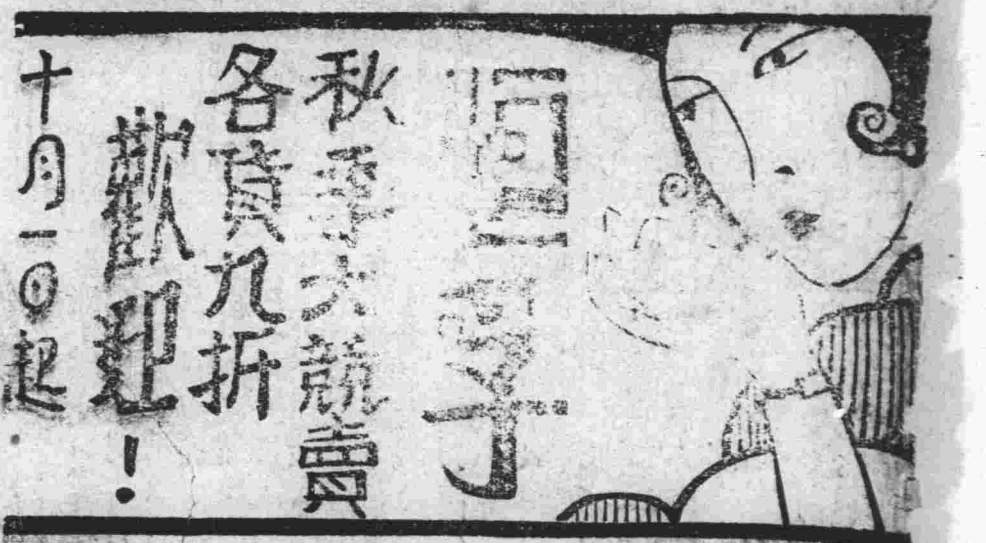 恒孚
秋季大競賣
各貨九折
歡迎！
十月一日起